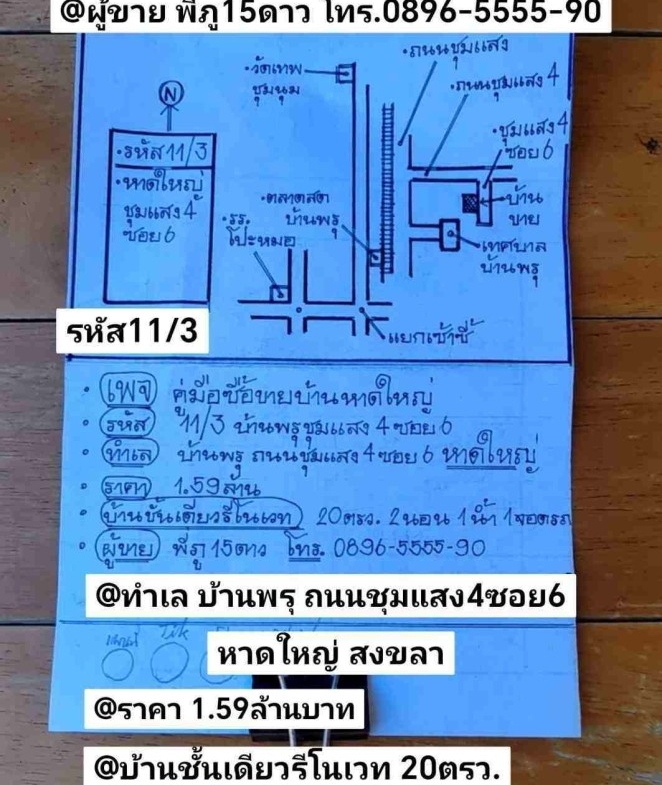 @ผู้ขาย พี่ภู15ดาว โทร.0896-5555-90
•ถนนชุมแสง
•วัดเทพ
ชุมนุม
•ถนนชุมแสง 4
N
•ชุมแสง 4
ซอย 6
•รหัส 11/3
•หาดใหญ่
ชุมแสง 4
ซอย 6
•ตลาดสด
บ้านพรุ
•บ้าน
ขาย
•รร.
โป๊ะหมอ
•เทศบาล
บ้านพรุ
รหัส11/3
•แยกเข้าซี้
• เพจ คู่มือซื้อขายบ้านหาดใหญ่
• รหัส 11/3 บ้านพรุชุมแสง 4 ซอย 6
• ทำเล บ้านพรุ ถนนชุมแสง 4 ซอย 6 หาดใหญ่
• ราคา 1.59 ล้าน
• บ้านชั้นเดียวรีโนเวท 20ตรว. 2นอน 1น้ำ 1จอดรถ
• ผู้ขาย พี่ภู 15ดาว โทร. 0896-5555-90
@ทำเล บ้านพรุ ถนนชุมแสง4ซอย6
Tik
หาดใหญ่ สงขลา
@ราคา 1.59ล้านบาท
@บ้านชั้นเดียวรีโนเวท 20ตรว.